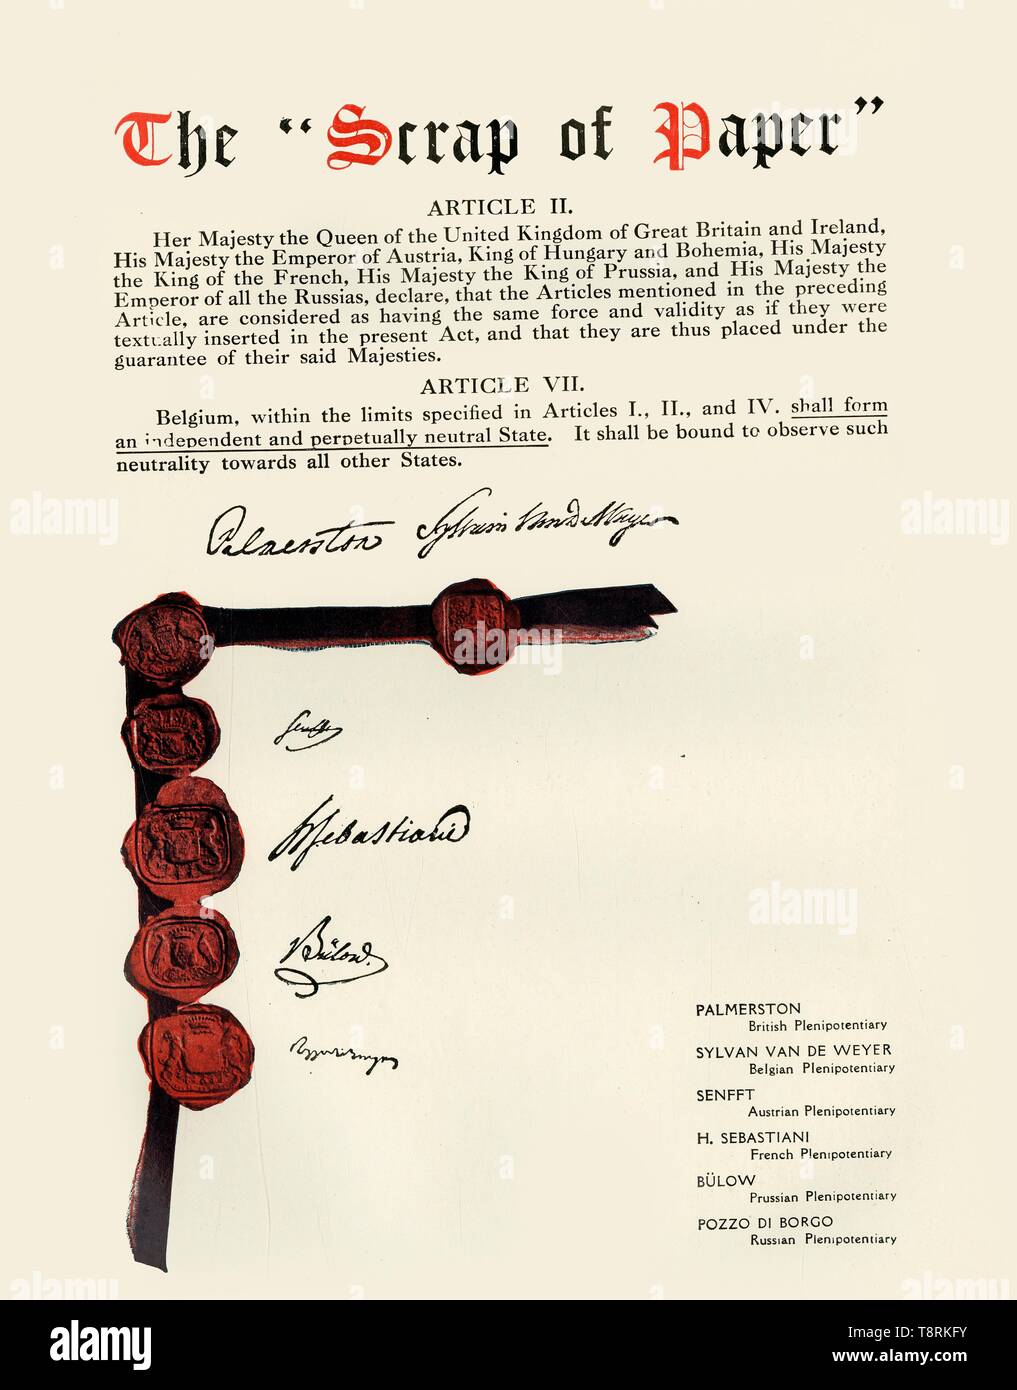 The "Scrap of Paper"
ARTICLE II.
Her Majesty the Queen of the United Kingdom of Great Britain and Ireland,
His Majesty the Emperor of Austria, King of Hungary and Bohemia, His Majesty
the King of the French, His Majesty the King of Prussia, and His Majesty the
Emperor of all the Russias, declare, that the Articles mentioned in the preceding
Article, are considered as having the same force and validity as if they were
textually inserted in the present Act, and that they are thus placed under the
guarantee of their said Majesties.
ARTICLE VII.
Belgium, within the limits specified in Articles I., II., and IV. shall form
an independent and perpetually neutral State. It shall be bound to observe such
neutrality towards all other States.
Palmerston Sylvain Van de Weyer
Senfft
H Sebastiani
Bülow.
PALMERSTON
British Plenipotentiary
SYLVAN VAN DE WEYER
Belgian Plenipotentiary
SENFFT
Austrian Plenipotentiary
H. SEBASTIANI
French Plenipotentiary
BÜLOW
Prussian Plenipotentiary
POZZO DI BORGO
Russian Plenipotentiary
alamy
Image ID: T8RKFY
www.alamy.com